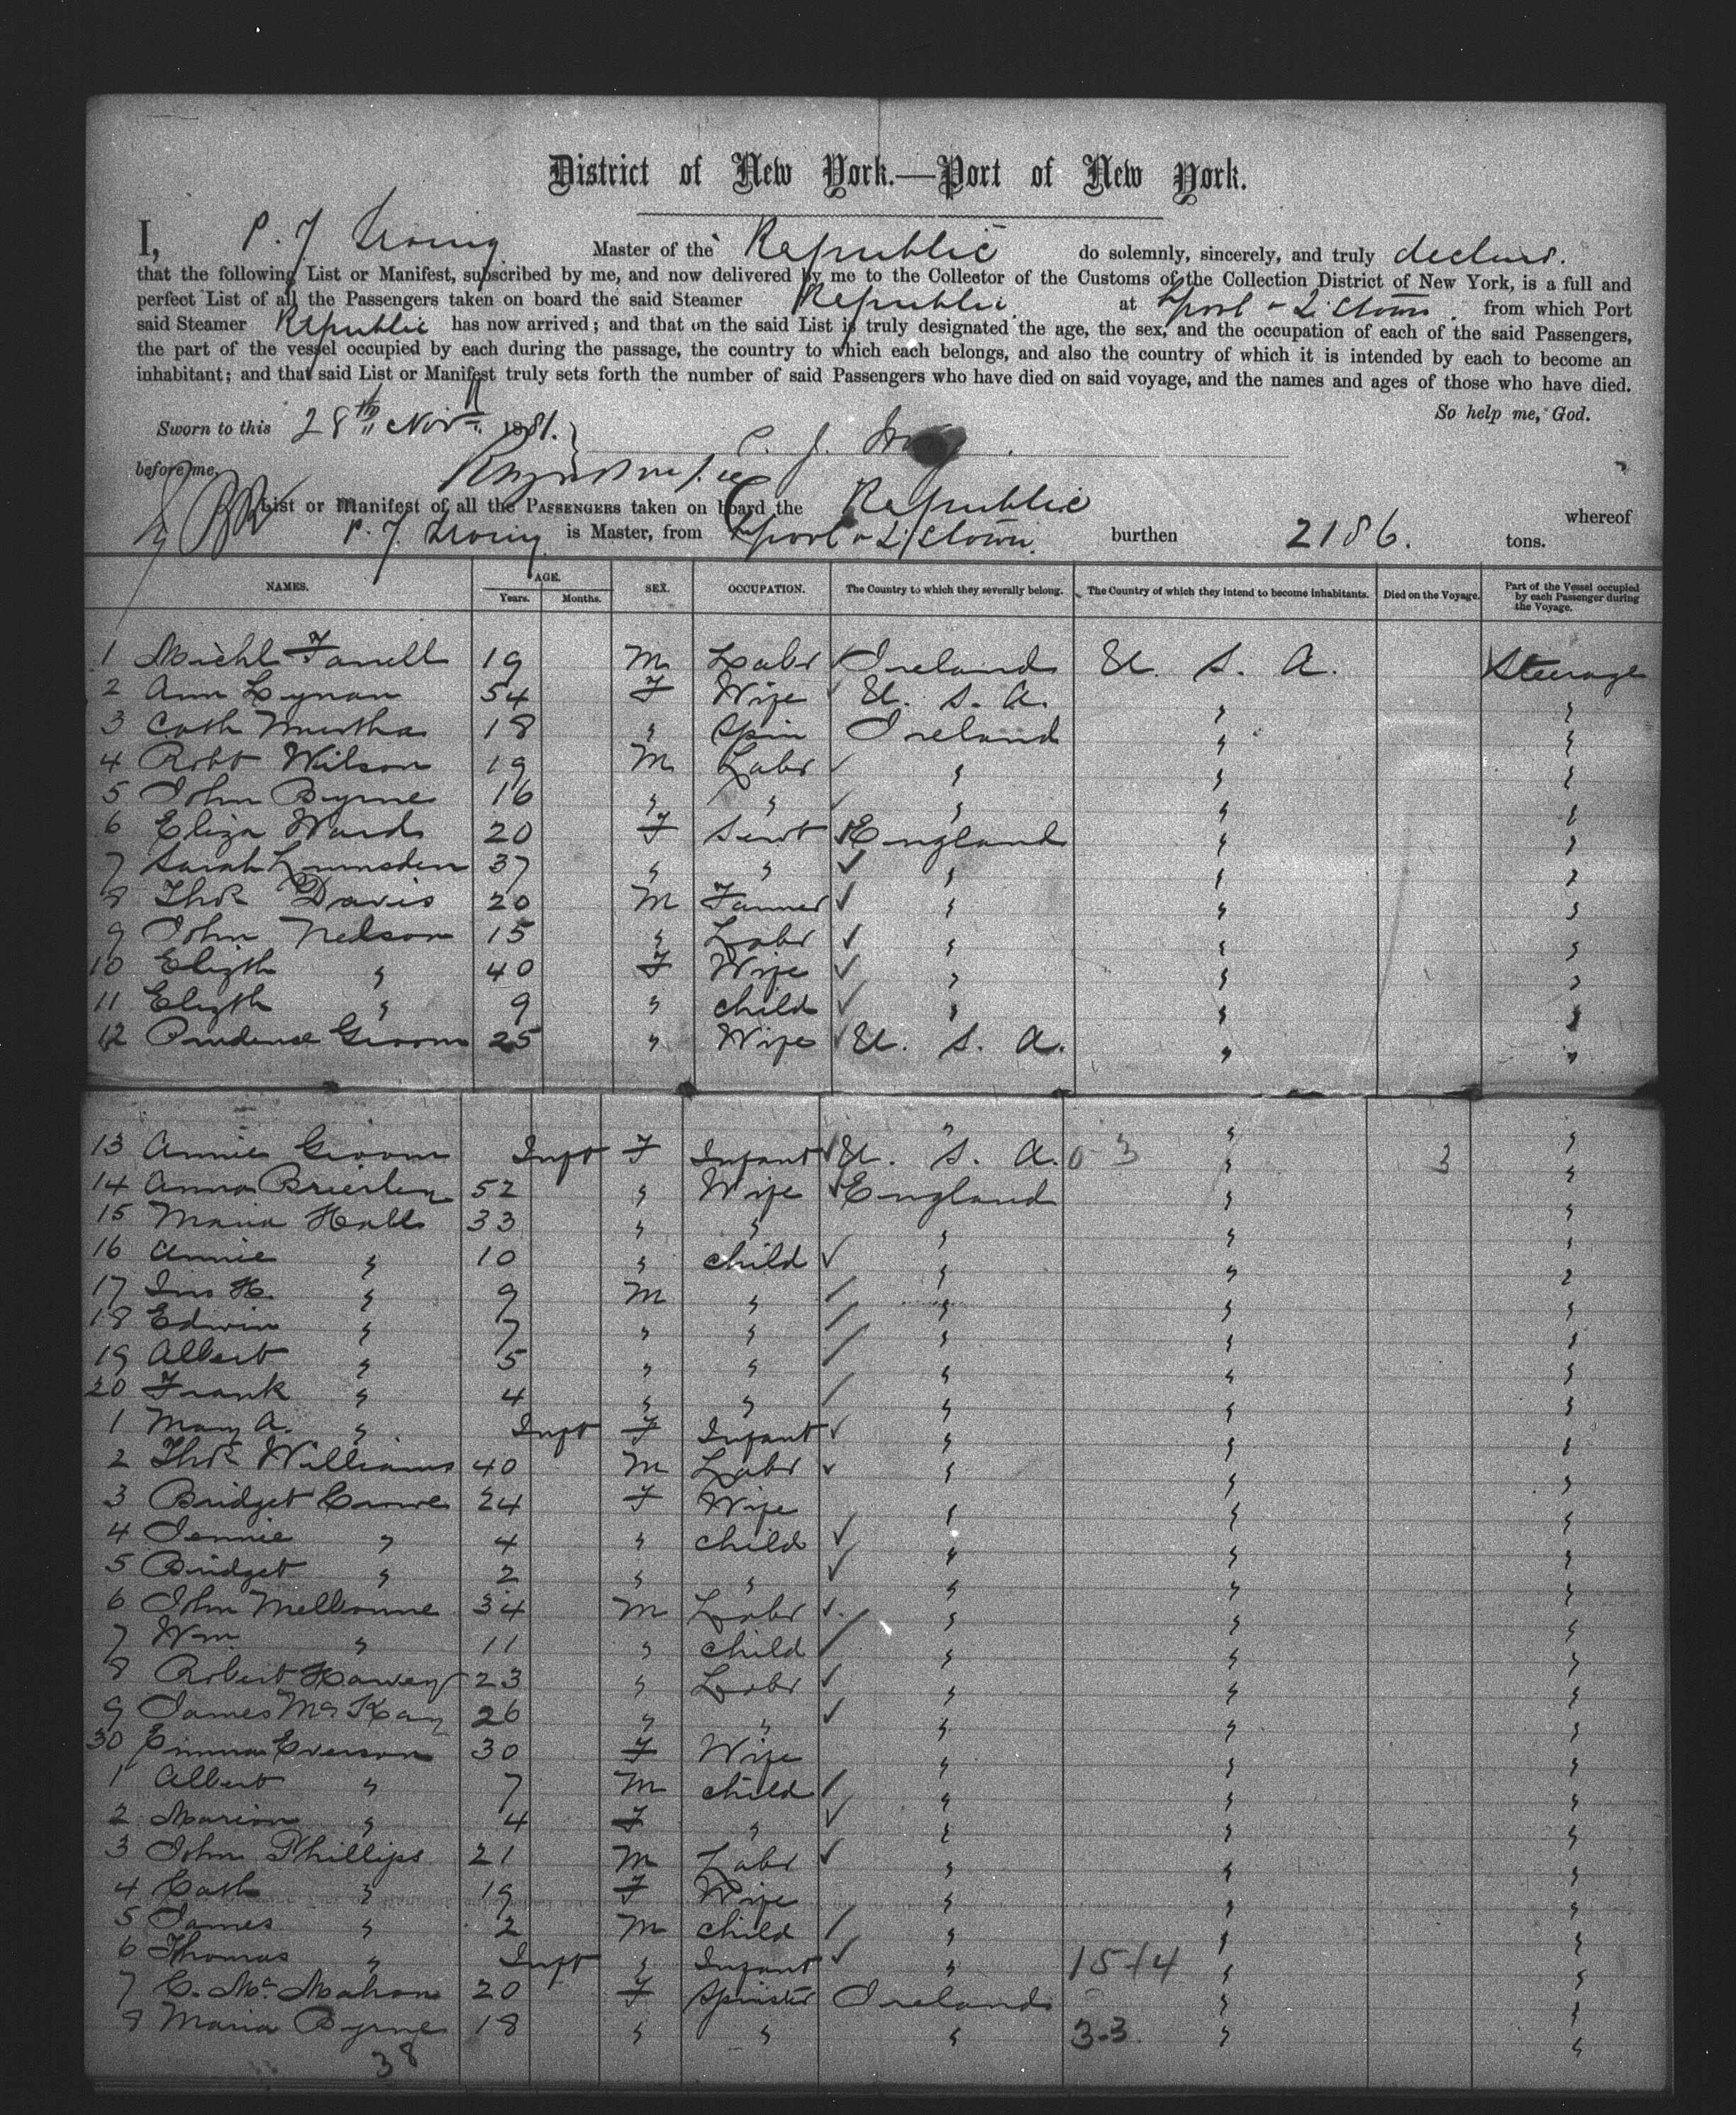 District of New York.—Port of New York.
I, P. J. Irving Master of the Republic do solemnly, sincerely, and truly declare.
that the following List or Manifest, subscribed by me, and now delivered by me to the Collector of the Customs of the Collection District of New York, is a full and
perfect List of all the Passengers taken on board the said Steamer Republic at Lpool & Q'town. from which Port
said Steamer Republic has now arrived; and that on the said List is truly designated the age, the sex, and the occupation of each of the said Passengers,
the part of the vessel occupied by each during the passage, the country to which each belongs, and also the country of which it is intended by each to become an
inhabitant; and that said List or Manifest truly sets forth the number of said Passengers who have died on said voyage, and the names and ages of those who have died.
So help me, God.
Sworn to this 28th Novr 1881. P. J. Irving
before me,
List or Manifest of all the PASSENGERS taken on board the Republic whereof
P. J. Irving is Master, from Lpool & Q'town. burthen 2186. tons.
NAMES. AGE. Years. Months. SEX. OCCUPATION. The Country to which they severally belong. The Country of which they intend to become inhabitants. Died on the Voyage. Part of the Vessel occupied by each Passenger during the Voyage.
1 Michl Farrell 19 M Labr Ireland U. S. A. Steerage
2 Ann Lynan 54 F Wife U. S. A. " "
3 Cath Murtha 18 " Spin Ireland " "
4 Robt Wilson 19 M Labr " " "
5 John Byrne 16 " " " " "
6 Eliza Wards 20 F Servt England " "
7 Sarah Lumsden 37 " " " " "
8 Thos Davis 20 M Farmer " " "
9 John Nelson 15 " Labr " " "
10 Elizth " 40 F Wife " " "
11 Elizth " 9 " child " " "
12 Prudence Groom 25 " Wife U. S. A. " "
" " "
13 Annie Groom Inft F Infant U. S. A. 0 3 " 3 "
14 Anna Brierley 52 " Wife England " "
15 Maria Hall 33 " " " " "
16 Annie " 10 " child " " "
17 Jno H. " 9 M " " " "
18 Edwin " 7 " " " " "
19 Albert " 5 " " " " "
20 Frank " 4 " " " " "
1 Mary A. " Inft F Infant " " "
2 Thos Williams 40 M Labr " " "
3 Bridget Crowe 24 F Wife " " "
4 Jennie " 4 " child " " "
5 Bridget " 2 " " " " "
6 John Melbourne 34 M Labr " " "
7 Wm " 11 " child " " "
8 Robert Harvey 23 " Labr " " "
9 James McKay 26 " " " " "
30 Emma Everson 30 F Wife " " "
1 Albert " 7 M child " " "
2 Marion " 4 F " " " "
3 John Phillips 21 M Labr " " "
4 Cath " 19 F Wife " " "
5 James " 2 M child " " "
6 Thomas " Inft " Infant " 15+4 " "
7 C. Mc Mahon 20 F Spinster Ireland " "
8 Maria Byrne 18 " " " 3-3 " "
38